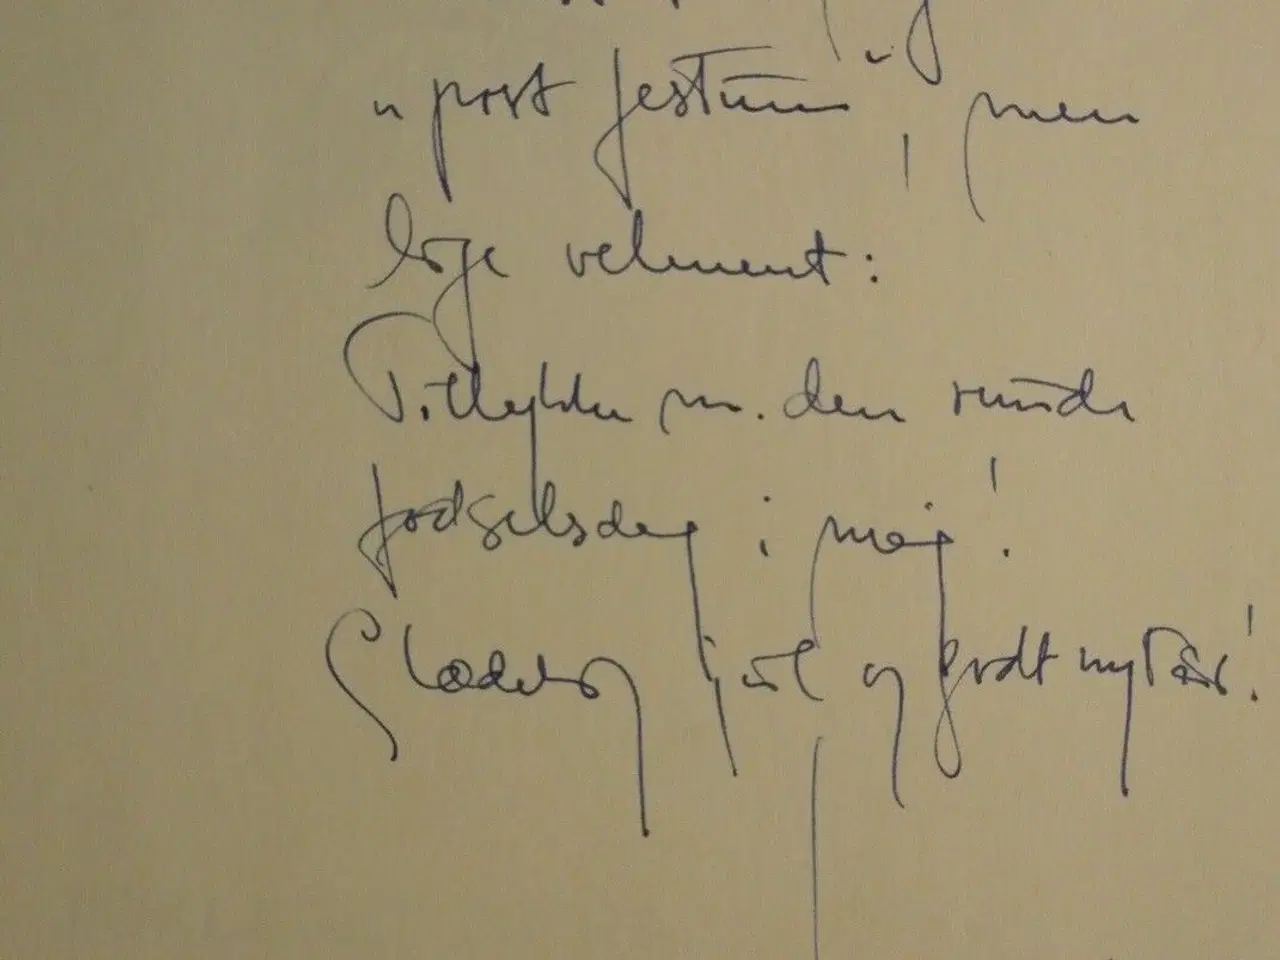 "post festum", men
lige velment:
Tillykke m. den runde
fødselsdag i maj!
Glædelig jul og godt nytår!